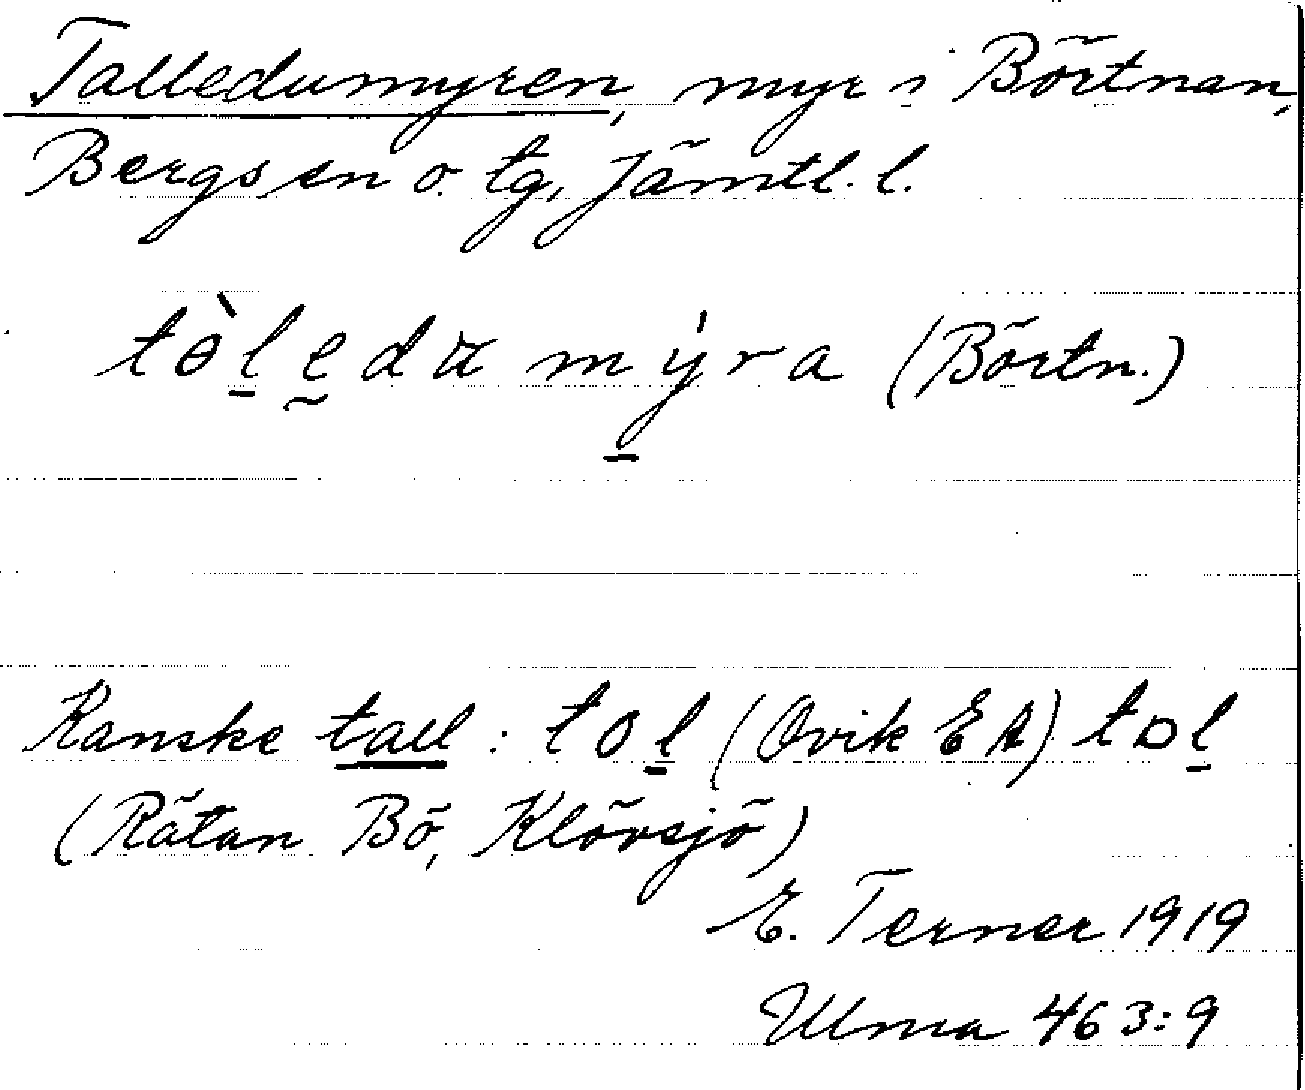 Talledumyren, myr i Börtnan,
Bergs sn o. tg, Jämtl. l.
tòl̲ḛdu mýra (Börtn.)
Kanske tall: tol̲ (Ovik EA) tɒl̲
(Rätan Bö, Klövsjö)
E. Terner 1919
Ulma 463:9